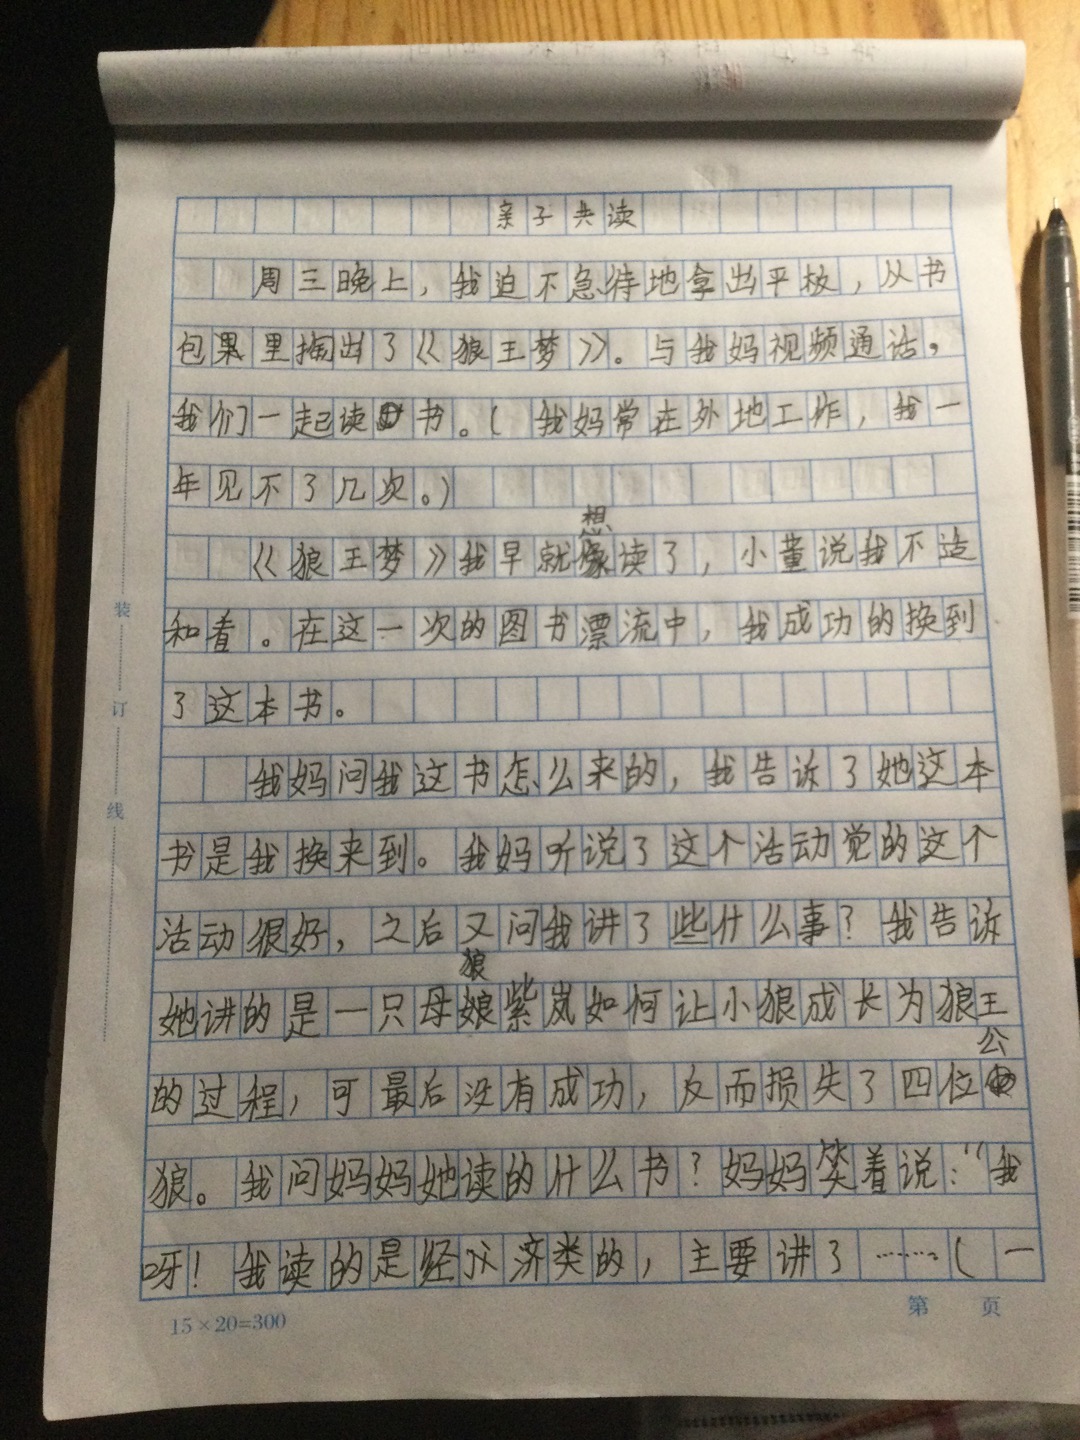 亲子共读
周三晚上，我迫不急待地拿出平板，从书
包里掏出了《狼王梦》。与我妈视频通话，
我们一起读书。（我妈常在外地工作，我一
年见不了几次。）
《狼王梦》我早就想读了，小董说我不适
和看。在这一次的图书漂流中，我成功的换到
了这本书。
我妈问我这书怎么来的，我告诉了她这本
书是我换来到。我妈听说了这个活动觉的这个
活动很好，之后又问我讲了些什么事？我告诉
她讲的是一只母狼紫岚如何让小狼成长为狼王
的过程，可最后没有成功，反而损失了四位公
狼。我问妈妈她读的什么书？妈妈笑着说：“我
呀！我读的是经济类的，主要讲了……（一
装
订
线
15×20=300
第 页